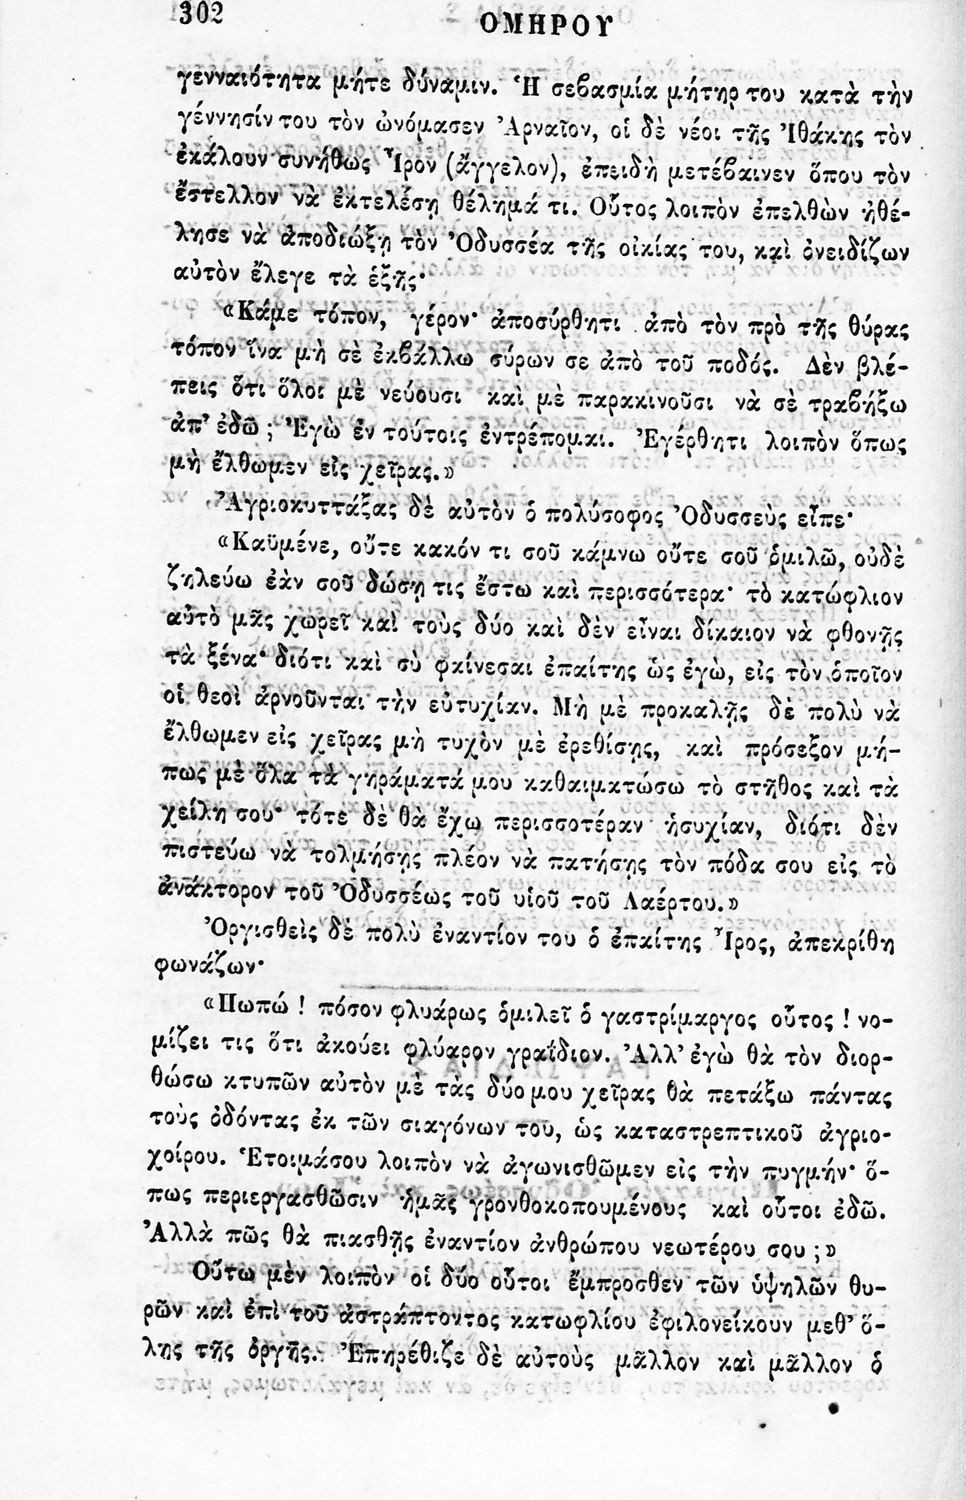 302
ΟΜΗΡΟΥ
γενναιότητα μήτε δύναμιν. Ἡ σεβασμία μήτηρ του κατὰ τὴν
γέννησίν του τὸν ὠνόμασεν Ἀρναῖον, οἱ δὲ νέοι τῆς Ἰθάκης τὸν
ἐκάλουν συνήθως Ἶρον (ἄγγελον), ἐπειδὴ μετέβαινεν ὅπου τὸν
ἔστελλον νὰ ἐκτελέσῃ θέλημά τι. Οὗτος λοιπὸν ἐπελθὼν ἠθέ-
λησε νὰ ἀποδιώξῃ τὸν Ὀδυσσέα τῆς οἰκίας του, καὶ ὀνειδίζων
αὐτὸν ἔλεγε τὰ ἑξῆς·
«Κάμε τόπον, γέρον· ἀποσύρθητι ἀπὸ τὸν πρὸ τῆς θύρας
τόπον ἵνα μὴ σὲ ἐκβάλλω σύρων σε ἀπὸ τοῦ ποδός. Δὲν βλέ-
πεις ὅτι ὅλοι μὲ νεύουσι καὶ μὲ παρακινοῦσι νὰ σὲ τραβήξω
ἀπ’ ἐδῶ ; Ἐγὼ ἐν τούτοις ἐντρέπομαι. Ἐγέρθητι λοιπὸν ὅπως
μὴ ἔλθωμεν εἰς χεῖρας.»
Ἀγριοκυττάξας δὲ αὐτὸν ὁ πολύσοφος Ὀδυσσεὺς εἶπε·
«Καϋμένε, οὔτε κακόν τι σοῦ κάμνω οὔτε σοῦ ὁμιλῶ, οὐδὲ
ζηλεύω ἐὰν σοῦ δώσῃ τις ἔστω καὶ περισσότερα· τὸ κατώφλιον
αὐτὸ μᾶς χωρεῖ καὶ τοὺς δύο καὶ δὲν εἶναι δίκαιον νὰ φθονῇς
τὰ ξένα· διότι καὶ σὺ φαίνεσαι ἐπαίτης ὡς ἐγὼ, εἰς τὸν ὁποῖον
οἱ θεοὶ ἀρνοῦνται τὴν εὐτυχίαν. Μὴ μὲ προκαλῇς δὲ πολὺ νὰ
ἔλθωμεν εἰς χεῖρας μὴ τυχὸν μὲ ἐρεθίσῃς, καὶ πρόσεξον μή-
πως μὲ ὅλα τὰ γηράματά μου καθαιματώσω τὸ στῆθος καὶ τὰ
χείλη σου· τότε δὲ θὰ ἔχω περισσοτέραν ἡσυχίαν, διότι δὲν
πιστεύω νὰ τολμήσῃς πλέον νὰ πατήσῃς τὸν πόδα σου εἰς τὸ
ἀνάκτορον τοῦ Ὀδυσσέως τοῦ υἱοῦ τοῦ Λαέρτου.»
Ὀργισθεὶς δὲ πολὺ ἐναντίον του ὁ ἐπαίτης Ἶρος, ἀπεκρίθη
φωνάζων·
«Πωπώ ! πόσον φλυάρως ὁμιλεῖ ὁ γαστρίμαργος οὗτος ! νο-
μίζει τις ὅτι ἀκούει φλύαρον γραΐδιον. Ἀλλ’ ἐγὼ θὰ τὸν διορ-
θώσω κτυπῶν αὐτὸν μὲ τὰς δύο μου χεῖρας θὰ πετάξω πάντας
τοὺς ὀδόντας ἐκ τῶν σιαγόνων του, ὡς καταστρεπτικοῦ ἀγριο-
χοίρου. Ἑτοιμάσου λοιπὸν νὰ ἀγωνισθῶμεν εἰς τὴν πυγμήν· ὅ-
πως περιεργασθῶσιν ἡμᾶς γρονθοκοπουμένους καὶ οὗτοι ἐδῶ.
Ἀλλὰ πῶς θὰ πιασθῇς ἐναντίον ἀνθρώπου νεωτέρου σου ;»
Οὕτω μὲν λοιπὸν οἱ δύο οὗτοι ἔμπροσθεν τῶν ὑψηλῶν θυ-
ρῶν καὶ ἐπὶ τοῦ ἀστράπτοντος κατωφλίου ἐφιλονείκουν μεθ’ ὅ-
λης τῆς ὀργῆς. Ἐπηρέθιζε δὲ αὐτοὺς μᾶλλον καὶ μᾶλλον ὁ